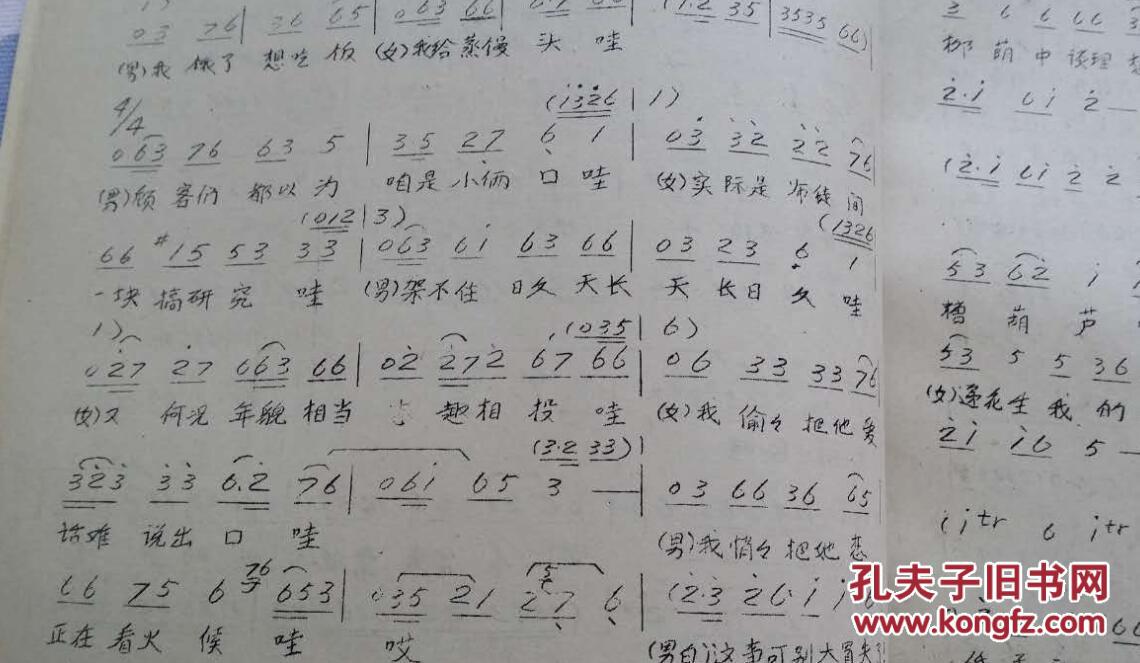 03 76 | 36 65 | 063 66 |
(男)我 饿了 想吃 饭 (女)我给 蒸馒 头 哇
(1·2 35 | 3535 66)
4/4
(1326 | 1)
063 76 63 5 | 35 27 6 1 | 03 32 22 76
(男)顾 客们 都以 为 咱是 小俩 口 哇 (女)实 际是 师徒 间
(012 | 3)
(1326
66 #15 53 33 | 063 61 63 66 | 03 23 6 1
一块 搞研 究 哇 (男)架不住 日久 天长 天 长日 久 哇
1)
(035 | 6)
027 27 663 66 | 02 272 67 66 | 06 33 33 76
(女)又 何况 年貌 相当 趣相 投 哇 (女)我 偷々 把他 爱
(3·2 33)
323 33 6·2 76 | 061 65 3 — | 03 66 36 65
话难 说出 口 哇 (男)我 悄々 把她 恋
66 75 6 76 653 | 035 21 27 6 | (2·3 26·1
正在 看火 候 哇 哎 (男白)这事可别大冒失
柳 荫 中 谈理
2·1 61 2 —
(2·1 61 2 2
53 62 1
槽 葫 芦
53 5 5 36
(女)逢花生 我 的
21 16 5 —
(1tr 6 1tr
66
孔夫子旧书网
www.kongfz.com